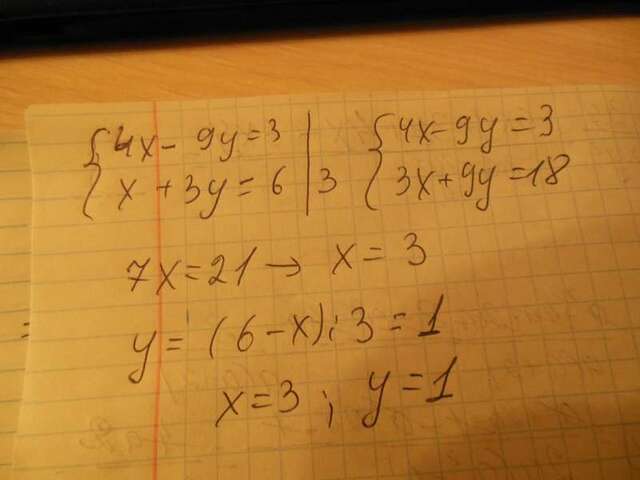 {4x - 9y = 3 | {4x - 9y = 3
{x + 3y = 6 | 3 {3x + 9y = 18
7x = 21 → x = 3
y = (6 - x) : 3 = 1
x = 3 ; y = 1